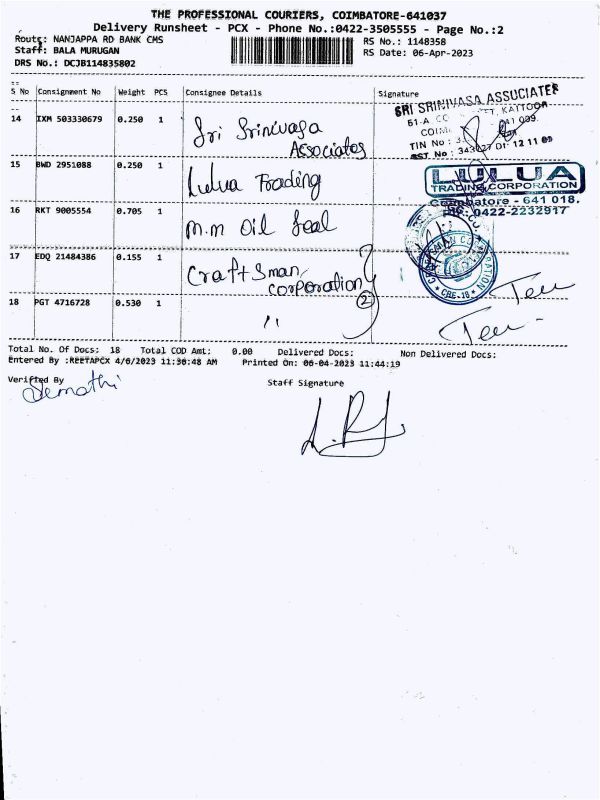 THE PROFESSIONAL COURIERS, COIMBATORE-641037
Delivery Runsheet - PCX - Phone No.:0422-3505555 - Page No.:2
Route: NANJAPPA RD BANK CMS
RS No.: 1148358
Staff: BALA MURUGAN
RS Date: 06-Apr-2023
DRS No.: DCJB114835802
S No Consignment No Weight PCS Consignee Details Signature
14 IXM 503330679 0.250 1 Sri Srinivasa Associates
SRI SRINIVASA ASSOCIATES
15 BWD 2951088 0.250 1 Lulua Trading
LULUA
TRADING CORPORATION
Coimbatore - 641 018.
PH: 0422-2232917
16 RKT 9005554 0.705 1 M.M Oil Seal
17 EDQ 21484386 0.155 1 Craftsman Corporation
2
18 PGT 4716728 0.530 1 "
Total No. Of Docs: 18 Total COD Amt: 0.00 Delivered Docs: Non Delivered Docs:
Entered By :REETAPCX 4/6/2023 11:36:48 AM Printed On: 06-04-2023 11:44:19
Verified By
Staff Signature